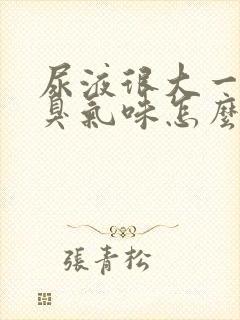 尿液很大一
臭氣味怎麼
張青松